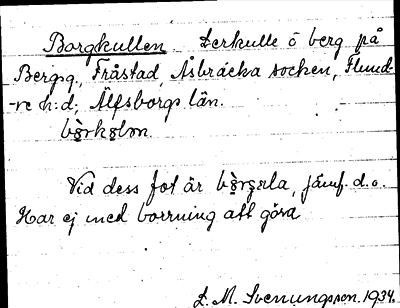 Borgkullen Lerkulle o berg på
Bergsg., Fråstad, Åsbräcka socken, Flund-
-re h:d; Älfsborgs län.
Vid dess fot är jämf. d.o.
Har ej med borrning att göra
L. M. Svenungsson. 1934.